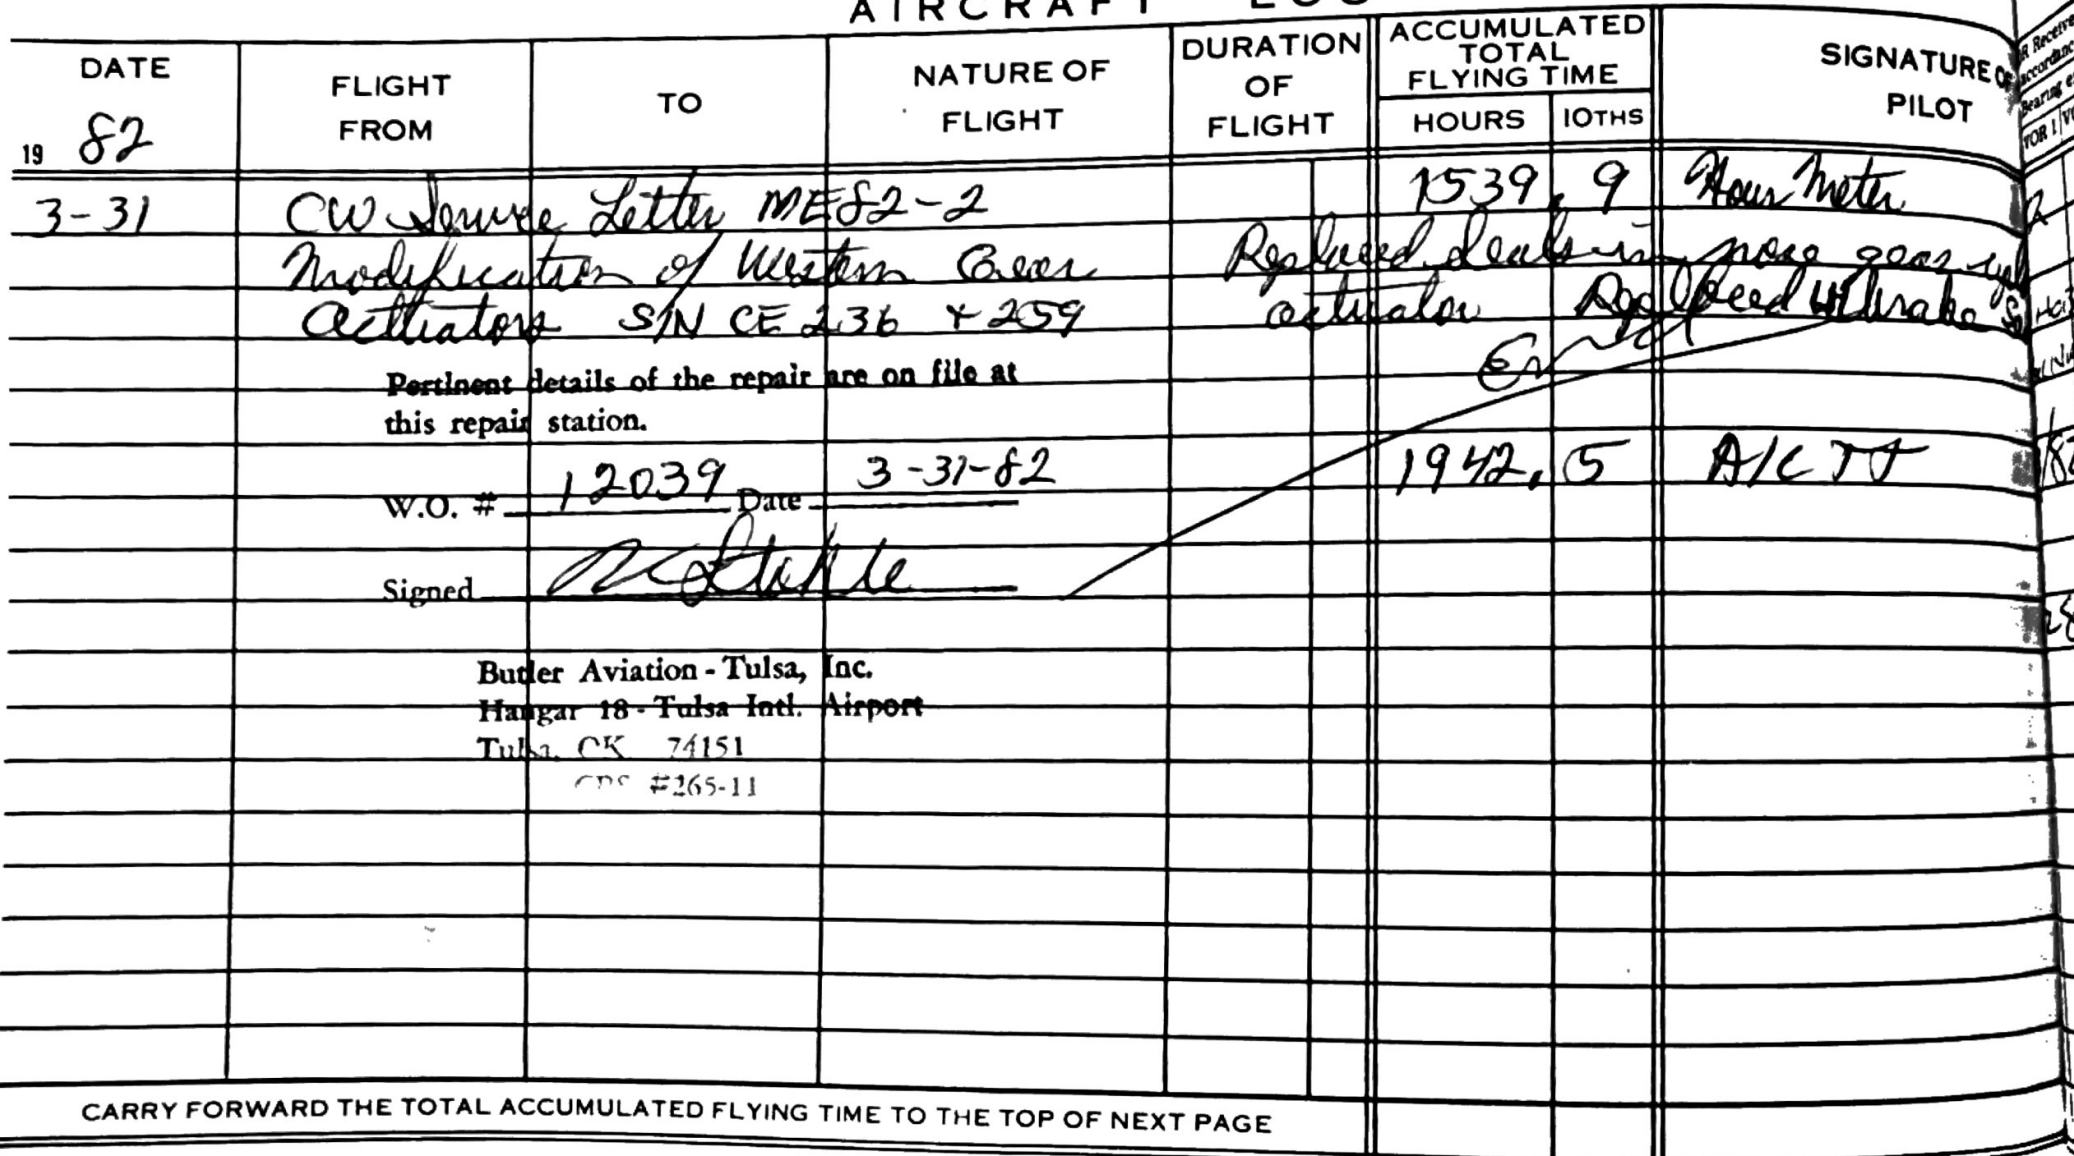 AIRCRAFT LOG
DATE
19 82
FLIGHT
FROM
TO
NATURE OF
FLIGHT
DURATION
OF
FLIGHT
ACCUMULATED
TOTAL
FLYING TIME
HOURS 10THS
SIGNATURE OF
PILOT
3-31 CW Service Letter ME82-2 1539.9 Hour Meter
Modification of Western Gear Replaced seals in nose gear
Actuators S/N CE 236 + 259 actuator brake
Pertinent details of the repair are on file at
this repair station.
W.O. # 12039 Date 3-31-82 1942.5 A/C TT
Signed
Butler Aviation - Tulsa, Inc.
Hangar 18 - Tulsa Intl. Airport
Tulsa, OK 74151
#265-11
CARRY FORWARD THE TOTAL ACCUMULATED FLYING TIME TO THE TOP OF NEXT PAGE